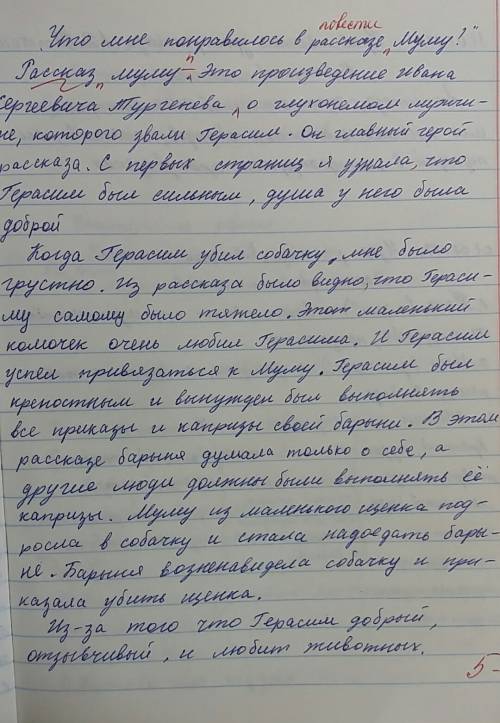 повести
Что мне понравилось в рассказе „Муму?"
Рассказ „муму" - Это произведение ивана
Сергеевича Тургенева, о глухонемом мужчи-
не, которого звали Герасим. Он главный герой
рассказа. С первых страниц я узнала, что
Герасим был сильным, душа у него была
доброй
Когда Герасим убил собачку, мне было
грустно. Из рассказа было видно, что Гераси-
му самому было тяжело. Этот маленький
комочек очень любил Герасима. И Герасим
успел привязаться к Муму. Герасим был
крепостным и вынужден был выполнять
все приказы и капризы своей барыни. В этом
рассказе барыня думала только о себе, а
другие люди должны были выполнять её
капризы. Муму из маленького щенка под-
росла в собачку и стала надоедать бары-
не. Барыня возненавидела собачку и при-
казала убить щенка.
Из-за того что Герасим добрый,
отзывчивый, и любит животных.
5-